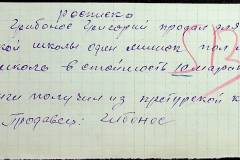 расписка
Грибонос Григорий продал для
кой школы один мешок пол
школь в стоимость 10 марок
ги получил из претурской к
Продавец: Гибонос